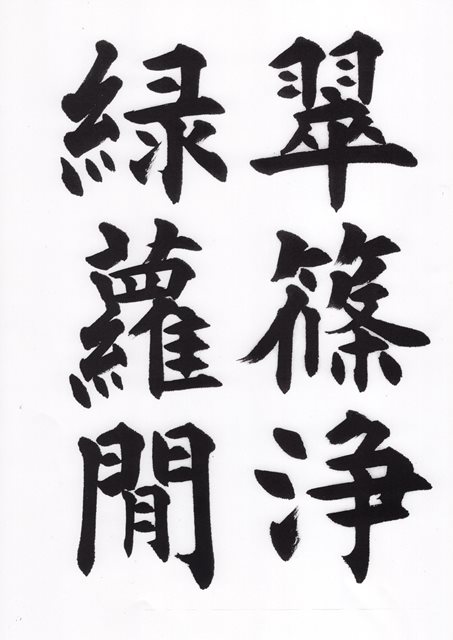 翠篠浄
緑蘿閒